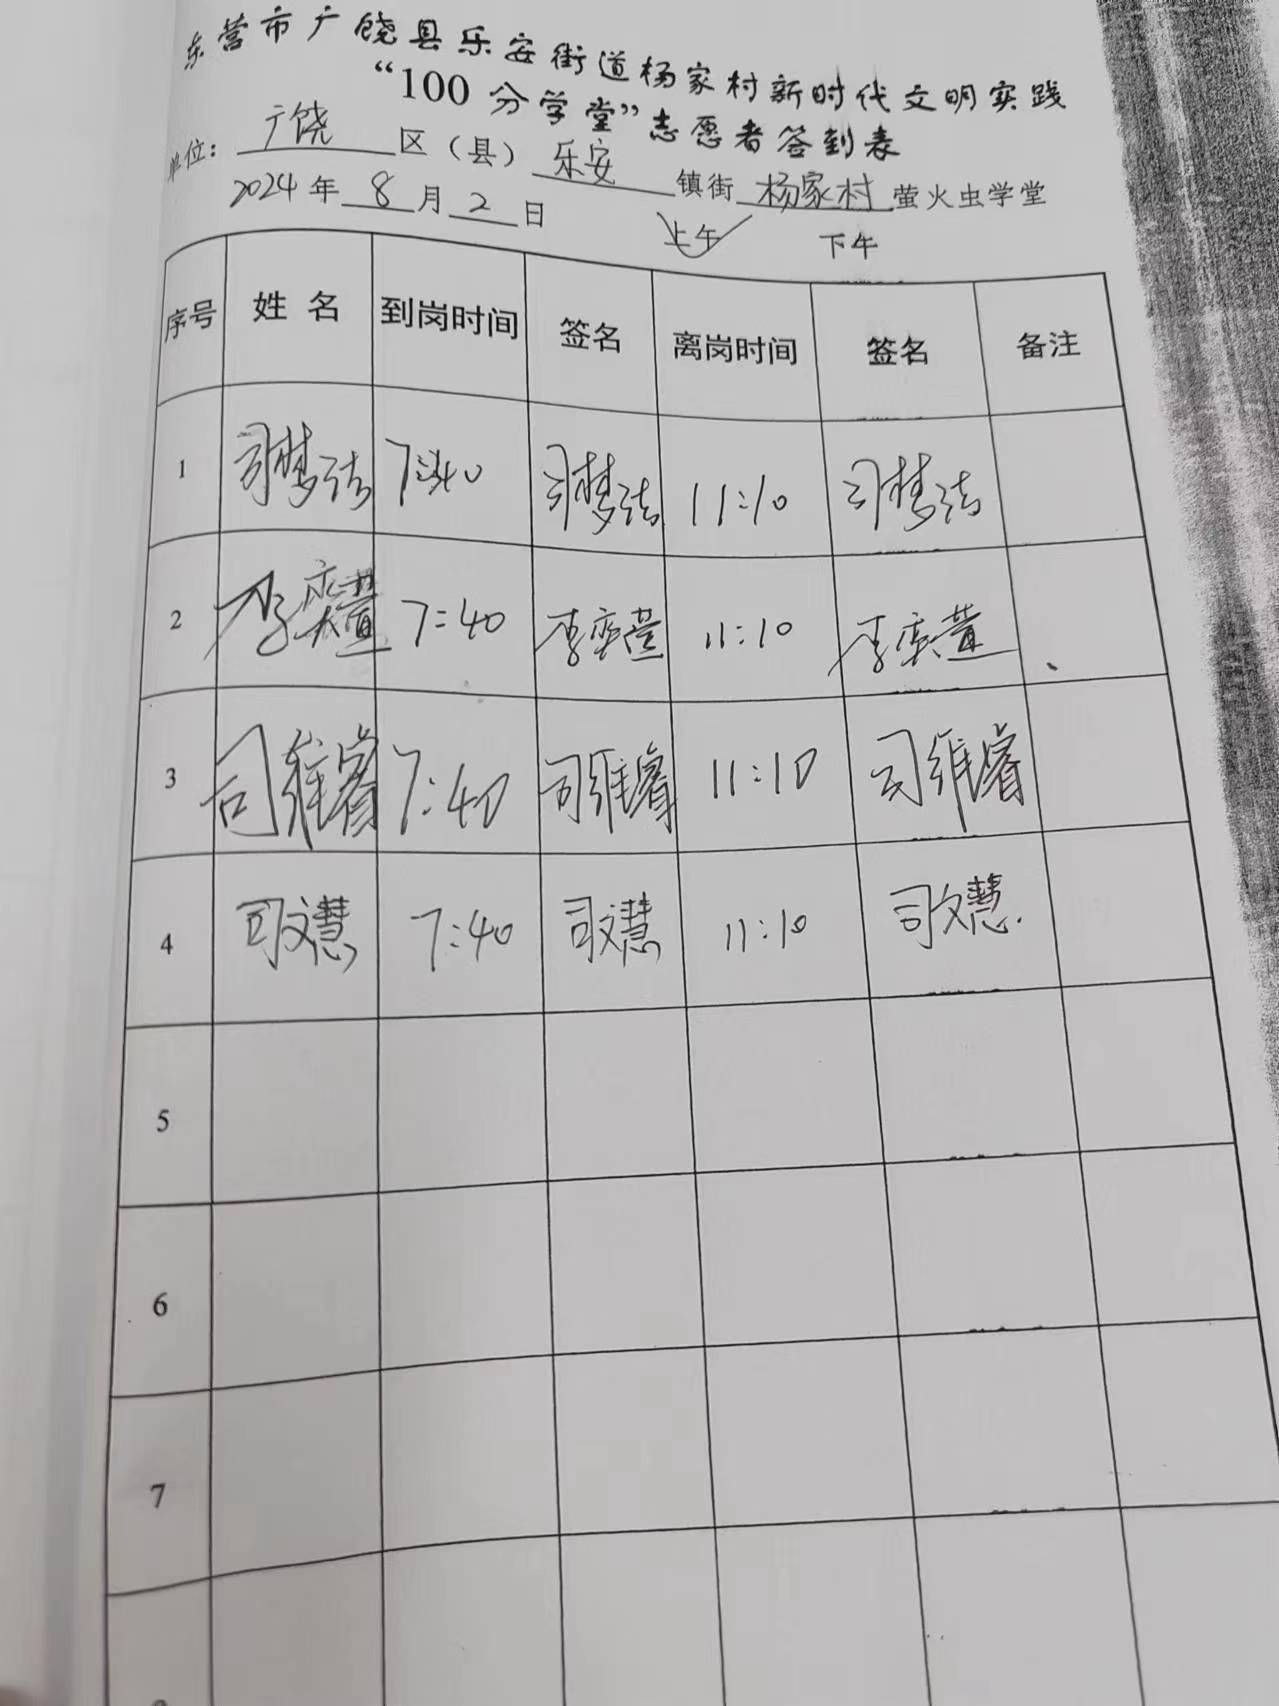 东营市广饶县乐安街道杨家村新时代文明实践
“100分学堂”志愿者签到表
单位：广饶区（县）乐安镇街杨家村萤火虫学堂
2024年8月2日 上午 下午
序号 姓名 到岗时间 签名 离岗时间 签名 备注
1 司梦洁 7:40 司梦洁 11:10 司梦洁
2 李奕萱 7:40 李奕萱 11:10 李奕萱
3 司维睿 7:40 司维睿 11:10 司维睿
4 司文慧 7:40 司文慧 11:10 司文慧
5
6
7